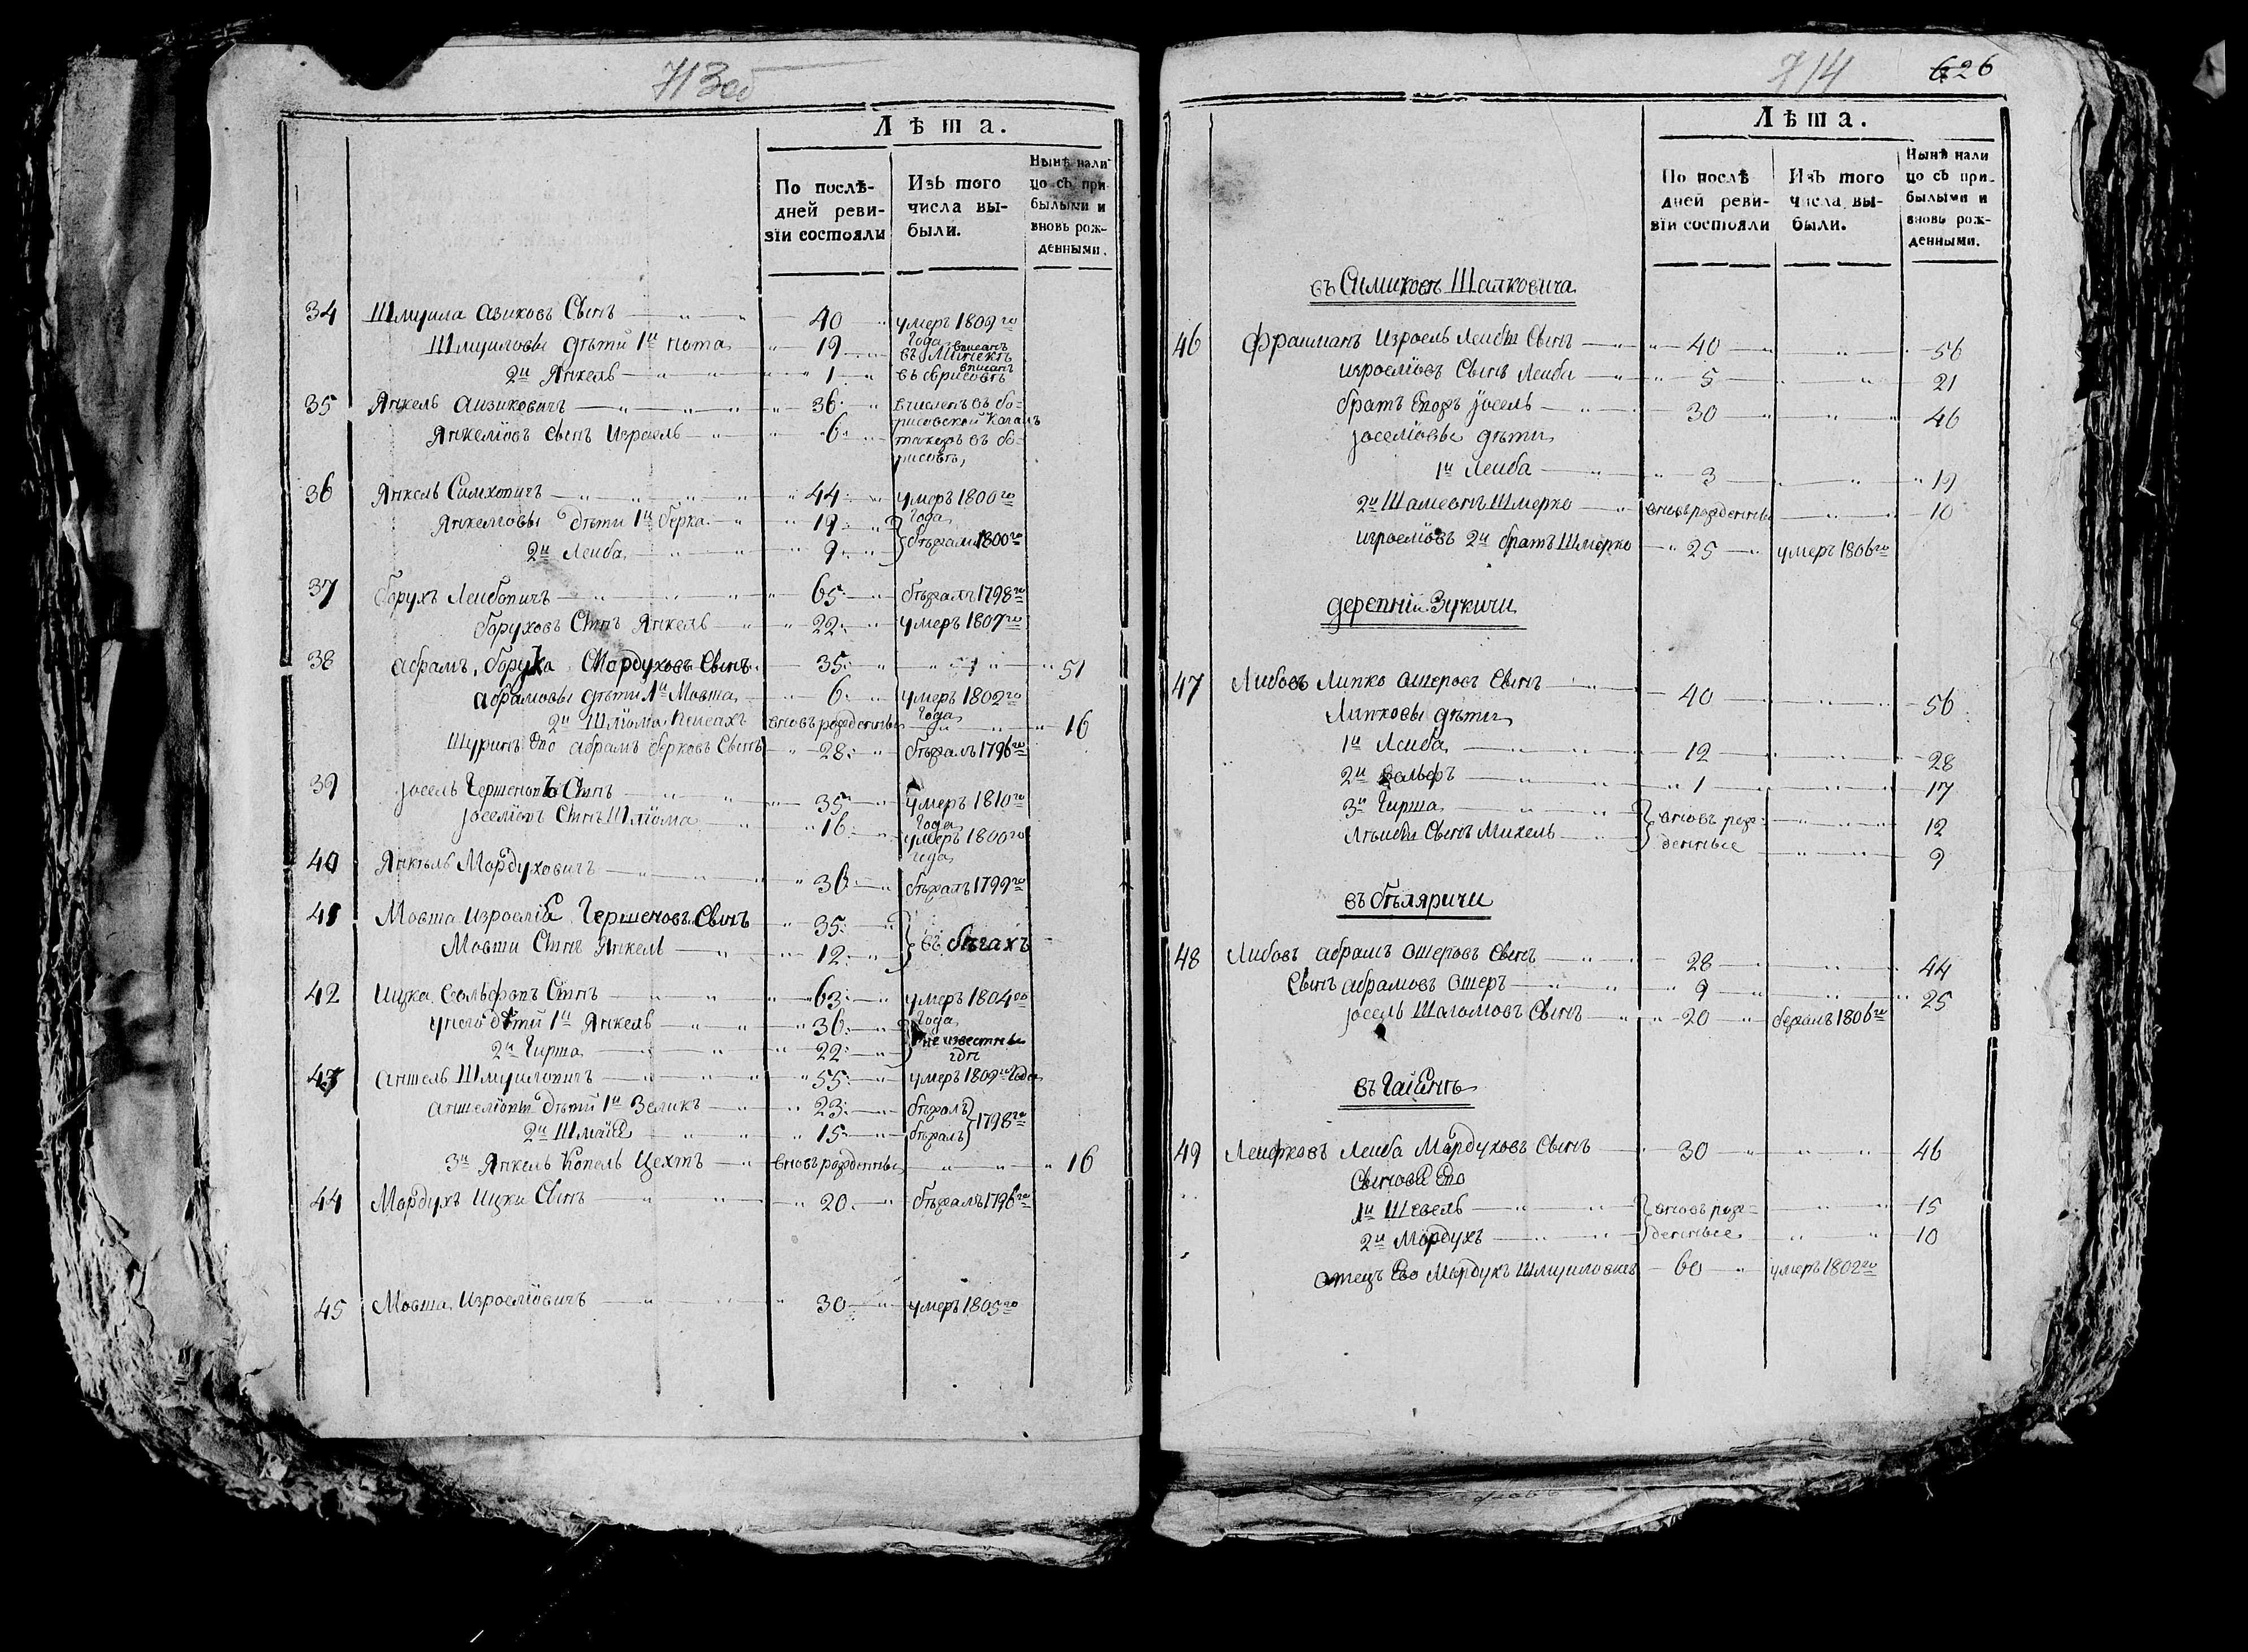 713об
Лѣта.
По послѣ-
дней реви-
зіи состояли
Изъ того
числа вы-
были.
Нынѣ нали
цо съ при
былыми и
вновь рож-
денными.
34 Шмуила Азиковъ Сынъ 40 умеръ 1809го
года
Шмуиловы дѣти 1й Нота 19 въ Минскѣ вписанъ
2й Янкель 1 въ борисовѣ вписанъ
35 Янкель Аизиковичъ 36 вчисленъ въ бо-
рисовской Кагалъ
Янкеліовъ Сынъ Израель 6 такожъ въ бо-
рисовѣ
36 Янкель Симховичъ 44 умеръ 1800го
года
Янкеліовы дѣти 1й берка 19
2й Леиба 9 бѣжали 1800го
37 Борухъ Леибовичъ 65 бѣжалъ 1798го
Боруховъ Сынъ Янкель 22 умеръ 1807го
38 Абрамъ, боруха Мордуховъ Сынъ 35 51
Абрамовы дѣти 1й Мовша 6 умеръ 1802го
года
2й Шліома Пеисахъ вновьрожденные 16
Шуринъ Его Абрамъ берковъ Сынъ 28 бѣжалъ 1796го
39 Іосель Гершеновъ Сынъ 35 умеръ 1810го
года
Іоселіовъ Сынъ Шліома 16 умеръ 1800го
года
40 Янкель Мордуховичъ 36 бѣжалъ 1799го
41 Мовша Израеліе Гершеновъ Сынъ 35
Мовши Сынъ Янкель 12 въ бѣгахъ
42 Ицка Вольфовъ Сынъ 63 умеръ 1804го
года
у него дѣтй 1й Янкель 36
2й Гирша 22 неизвестны
гдѣ
43 Аншель Шмуиловичъ 55 умеръ 1809го года
Аншеліовы дѣти 1й Зеликъ 23 бѣжалъ
2й Шмаіе 15 бѣжалъ 1798го
3й Янкель Копель Цехтъ вновьрожденные 16
44 Мордухъ Ицки Сынъ 20 бѣжалъ 1796го
45 Мовша Изроеліовичъ 30 умеръ 1805го
714 626
Лѣта.
По послѣ
дней реви-
зіи состояли
Изъ того
числа вы-
были.
Нынѣ нали
цо съ при-
былыми и
вновь рож-
денными.
46 Фраиманъ Изроель Леибы Сынъ 40 56
Изроеліовъ Сынъ Леиба 5 21
братъ Егожъ Іосель 30 46
Іоселіовы дѣти
1й Леиба 3 19
2й Шамеонъ Шмерко вновьрожденные 10
Изроеліовъ 2й братъ Шмерко 25 умеръ 1806го
деревніи Зукичи
47 Либовъ Липко Ошеровъ Сынъ 40 56
Липковы дѣти
1й Леиба 12 28
2й Вольфъ 1 17
3й Гирша вновь рож- 12
Сынъ Михель денные 9
въ бѣляричи
48 Либовъ Абрамъ Ошеровъ Сынъ 28 44
Сынъ Абрамовъ Ошеръ 9 25
Іосель Шаломовъ Сынъ 20 бежалъ 1806го
въ Гаіенѣ
49 Леифковъ Леиба Мордуховъ Сынъ 30 46
Сынове Его
1й Шевель вновь рож- 15
2й Мордухъ денные 10
Отецъ Его Мордухъ Шмуиловичъ 60 умеръ 1802го